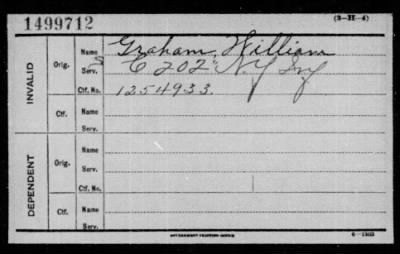 1499712
(3-H-4)
INVALID
Orig.
Name Graham, William
S
Serv. C 202" N.Y. Inf
Ctf. No. 1254933.
Ctf.
Name
Serv.
DEPENDENT
Orig.
Name
Serv.
Ctf. No.
Ctf.
Name
Serv.
GOVERNMENT PRINTING OFFICE